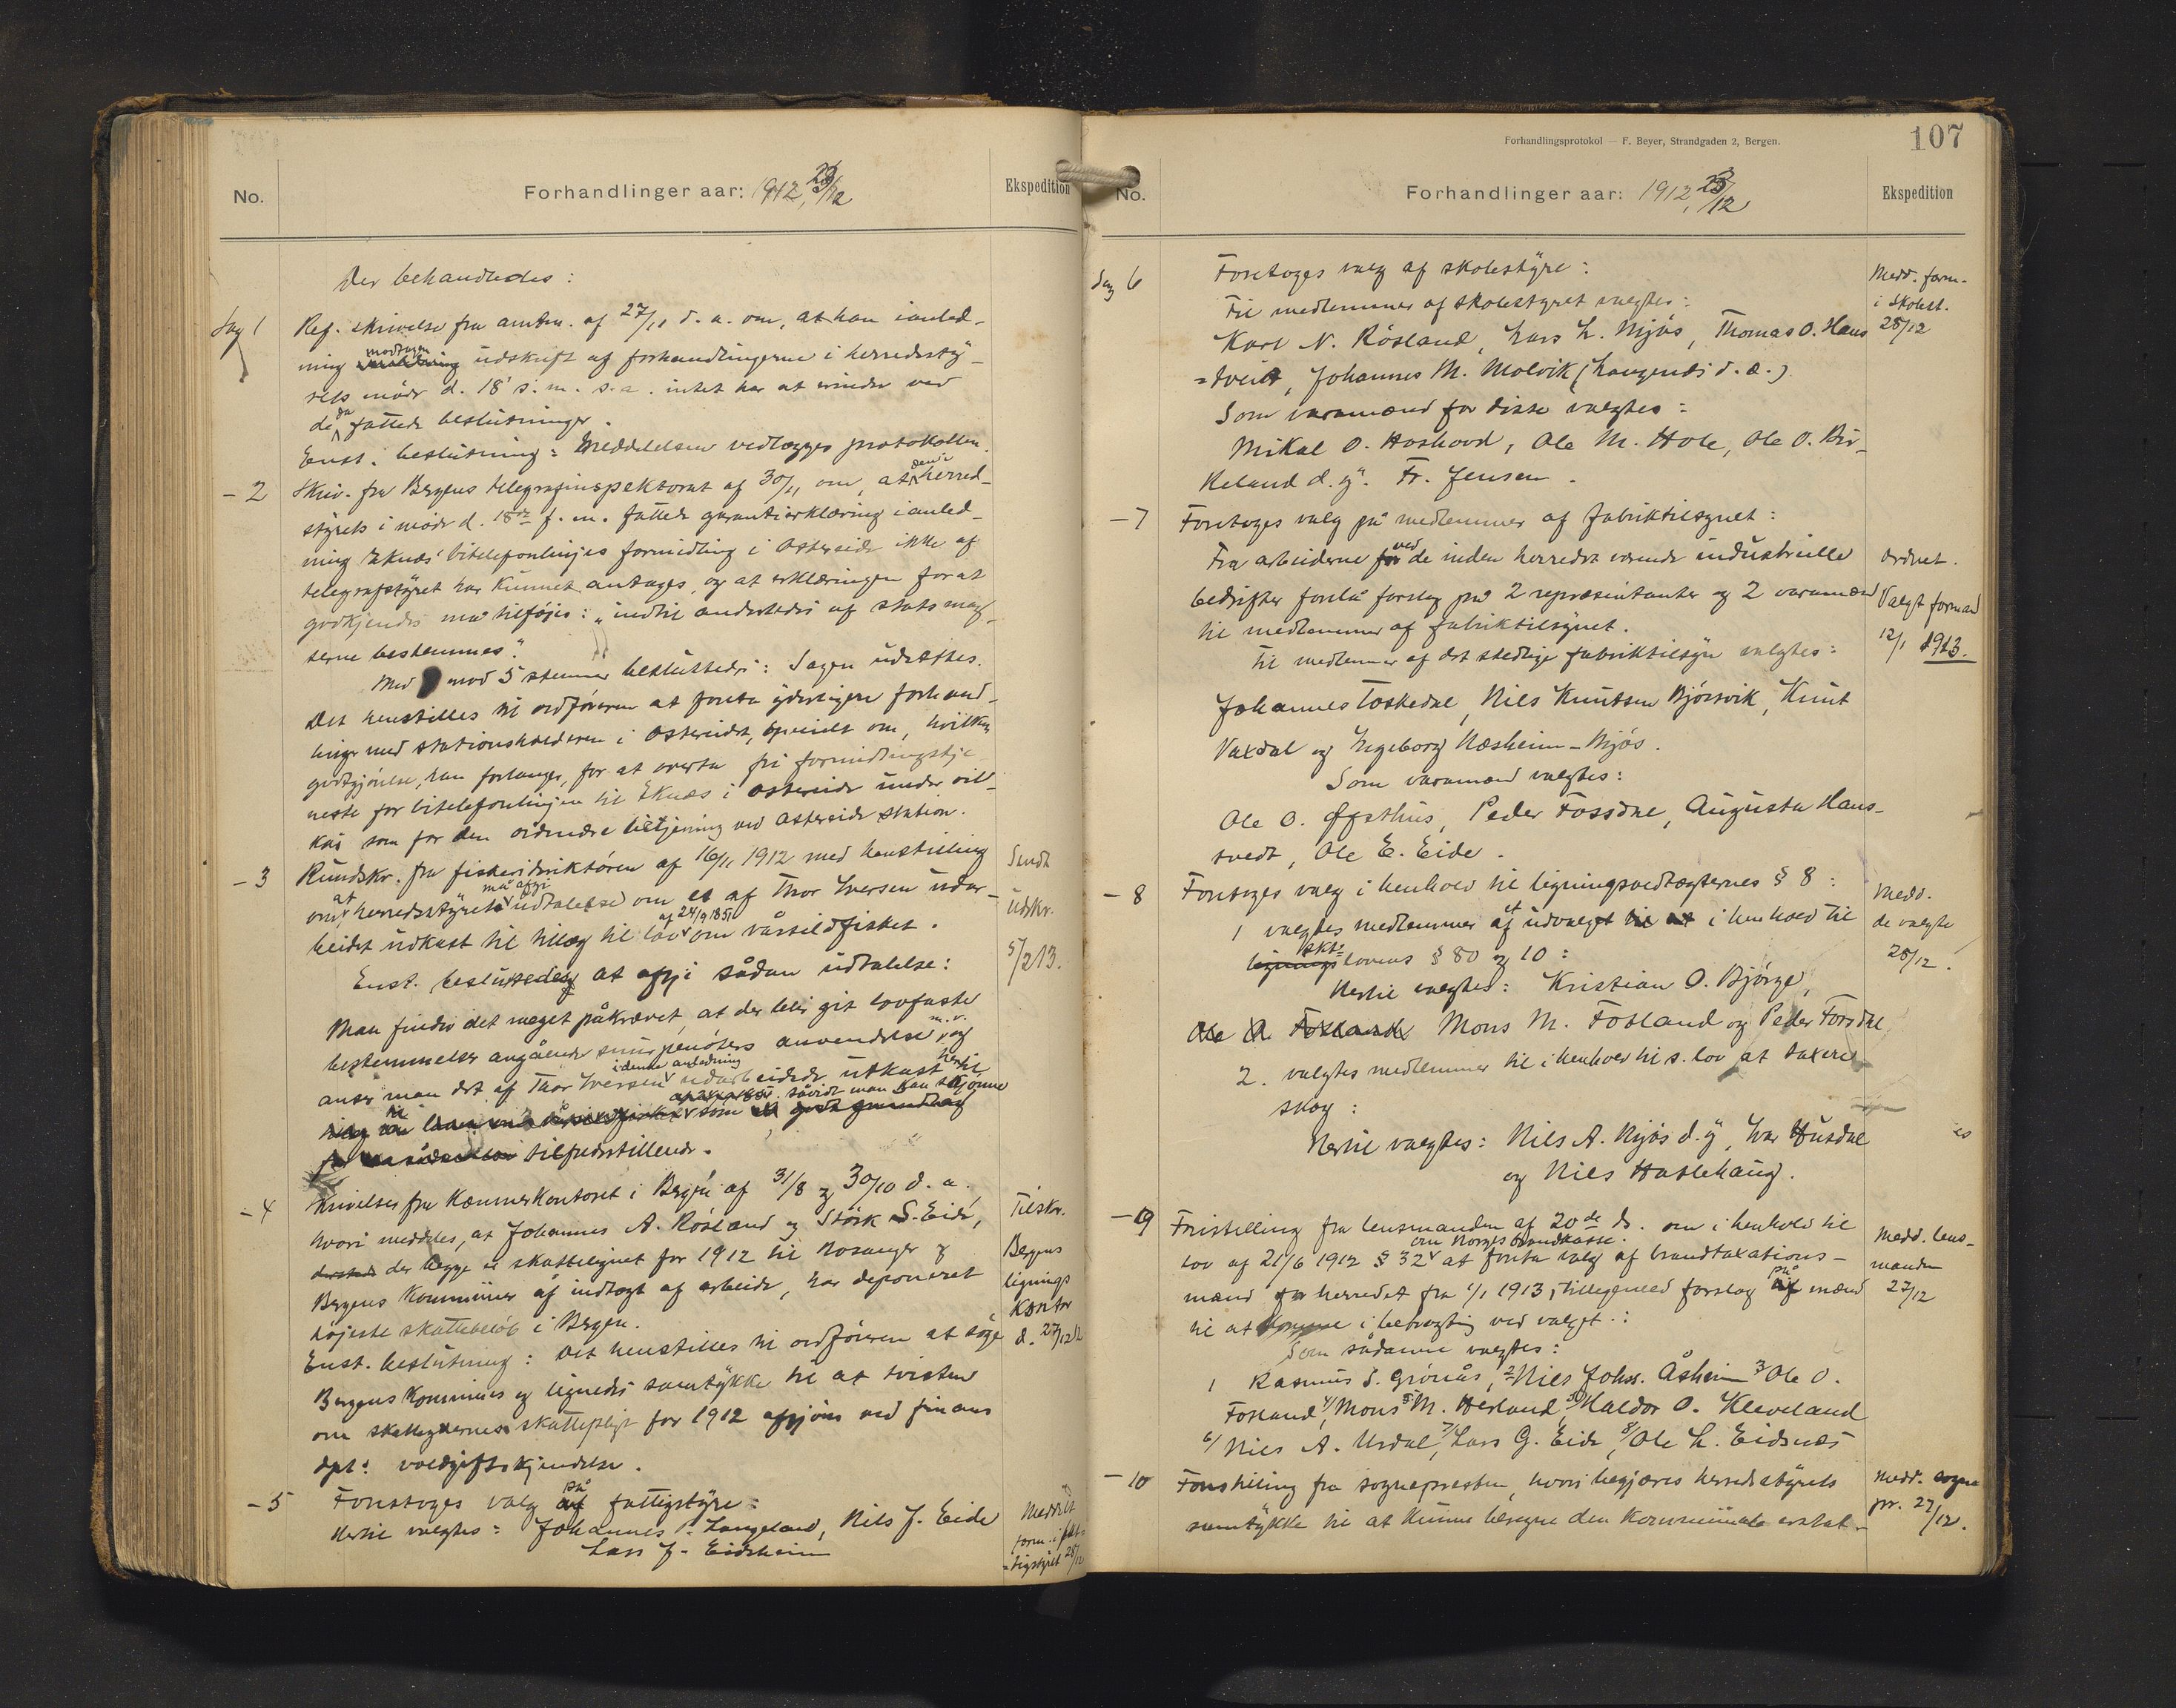 No.
Forhandlinger aar: 1912, 23/12
Ekspedition
Der behandledes:
Sag 1
Ref. skrivelse fra amtm. af 27/11 d. a. om, at han i anled-
ning modtagen udskrift af forhandlingerne i herredssty-
rets møde d. 18' s. m. s. a. intet har at erindre ved
de da fattede beslutninger.
Enst. beslutning: Meddelelsen vedlægges protokollen.
- 2
Skriv. fra Bergens telegrafinspektorat af 30/11 om, at den i herred-
styrets i møde d. 18de f. m. fattede garantierklæring i anled-
ning Eknæs bitelefonlinjes formidling i Ostereide ikke af
telegrafstyret har kunnet antages, og at erklæringen for at
godkjendes må tilføjes: "indtil anderledes af statsmag-
terne bestemmes".
Med mod 5 stemmer besluttedes: Sagen udsættes.
Det henstilles til ordføreren at foreta yderligere forhand-
linger med stationsholderen i Ostereidet, specielt om, hvilken
godtgjørelse, han forlanger, for at overta fri formidlingstje-
neste for bitelefonlinjen til Eknæs i Ostereide under vil-
kår som for den ordinære betjening ved Ostereide station.
- 3
Rundskr. fra fiskeridirektøren af 16/11 1912 med henstilling
om, at herredsstyret må afgi udtalelse om et af Thor Iversen udar-
beidet udkast til tillæg til lov af 24/9 1851 om vårsildfisket.
Enst. besluttedes at afgi sådan udtalelse:
Man finder det meget påkrævet, at der blir git lovfaste
bestemmelser angående snurpenøters anvendelse m. v., og
anser man det af Thor Iversen i denne anledning udarbeidede utkast hertil
såvidt man kan skjønne
som
tilfredsstillende.
Sendt
udskr.
5/2 13.
- 4
Skrivelser fra Kæmnerkontoret i Bergen af 31/8 og 30/10 d. a.
hvori meddeles, at Johannes A. Røsland og Størk S. Eide,
der begge er skattelignet for 1912 til Hosanger og
Bergens Kommuner af indtægt af arbeide, har deponeret
højeste skattebeløb i Bergen.
Enst. beslutning: Det henstilles til ordføreren at søge
Bergens Kommunes og lignedes samtykke til at tvisten
om skatteydernes skattepligt for 1912 afgjøres ved finans
dpts voldgiftskjendelse.
Tilskr.
Bergens
lignings
kontor
d. 27/12 12
- 5
Foretoges valg på fattigstyre:
Hertil valgtes: Johannes P. Langeland, Nils J. Eide
Lars J. Eidsheim
Meddelt
form. i fat-
=tigstyret 28/12
Forhandlingsprotokol — F. Beyer, Strandgaden 2, Bergen.
107
No.
Forhandlinger aar: 1912, 23/12
Ekspedition
Sag 6
Foretoges valg af skolestyre:
Til medlemmer af skolestyret valgtes:
Karl N. Røsland, Lars L. Mjøs, Thomas O. Haus
=tveit, Johannes M. Molvik (Langenæs d. æ.)
Som varamænd for disse valgtes:
Mikal O. Hoshovd, Ole M. Hole, Ole O. Bir-
keland d. y. Fr. Jensen.
Medd. form.
i skolest.
28/12
- 7
Foretoges valg på medlemmer af fabriktilsynet:
Fra arbeiderne ved de inden herredet værende industrielle
bedrifter forelå forslag på 2 repræsentanter og 2 varamænd
til medlemmer af fabriktilsynet.
Til medlemmer af det stedlige fabriktilsyn valgtes:
Johannes Toskedal, Nils Knutsen Bjørsvik, Knut
Vaxdal og Ingeborg Næsheim-Mjøs.
Som varamænd valgtes:
Ole O. Øfsthus, Peder Fossdal, Augusta Hans-
tvedt, Ole E. Eide.
Ordnet.
Valgt formand
12/1 1913.
- 8
Foretoges valg i henhold til ligningsvedtægternes § 8:
1 valgtes medlemmer af et udvalget i henhold til
sktlovens § 80 og 10:
Hertil valgtes: Kristian O. Bjørge,
Ole A. Fosland Mons M. Fosland og Peder Fossdal
2. valgtes medlemmer til i henhold til s. lov at taxere
skog:
Hertil valgtes: Nils A. Mjøs d. y, Ivar Husdal
og Nils Hatlehaug.
Medd.
de valgte
28/12.
- 9
Fristilling fra lensmanden af 20de ds. om i henhold til
lov af 21/6 1912 § 32 om Norges Brandkasse at foreta valg af brandtaxations-
mænd for herredet fra 1/1 1913, tillegemed forslag på mænd
til at komme i betragtning ved valget:
Som sådanne valgtes:
1 Rasmus S. Grønås, 2 Nils Johs. Åsheim 3 Ole O.
Fosland 4/ Mons M. Herland, 5/ Haldor O. Kleveland
6/ Nils A. Urdal, 7/ Lars G. Eide, 8/ Ole L. Eidsnæs
Medd. lens-
manden
27/12
- 10
Forestilling fra sognepresten, hvori begjæres herredsstyrets
samtykke til at kunne beregne den kommunale erstat-
Medd. sogne
pr. 27/12.